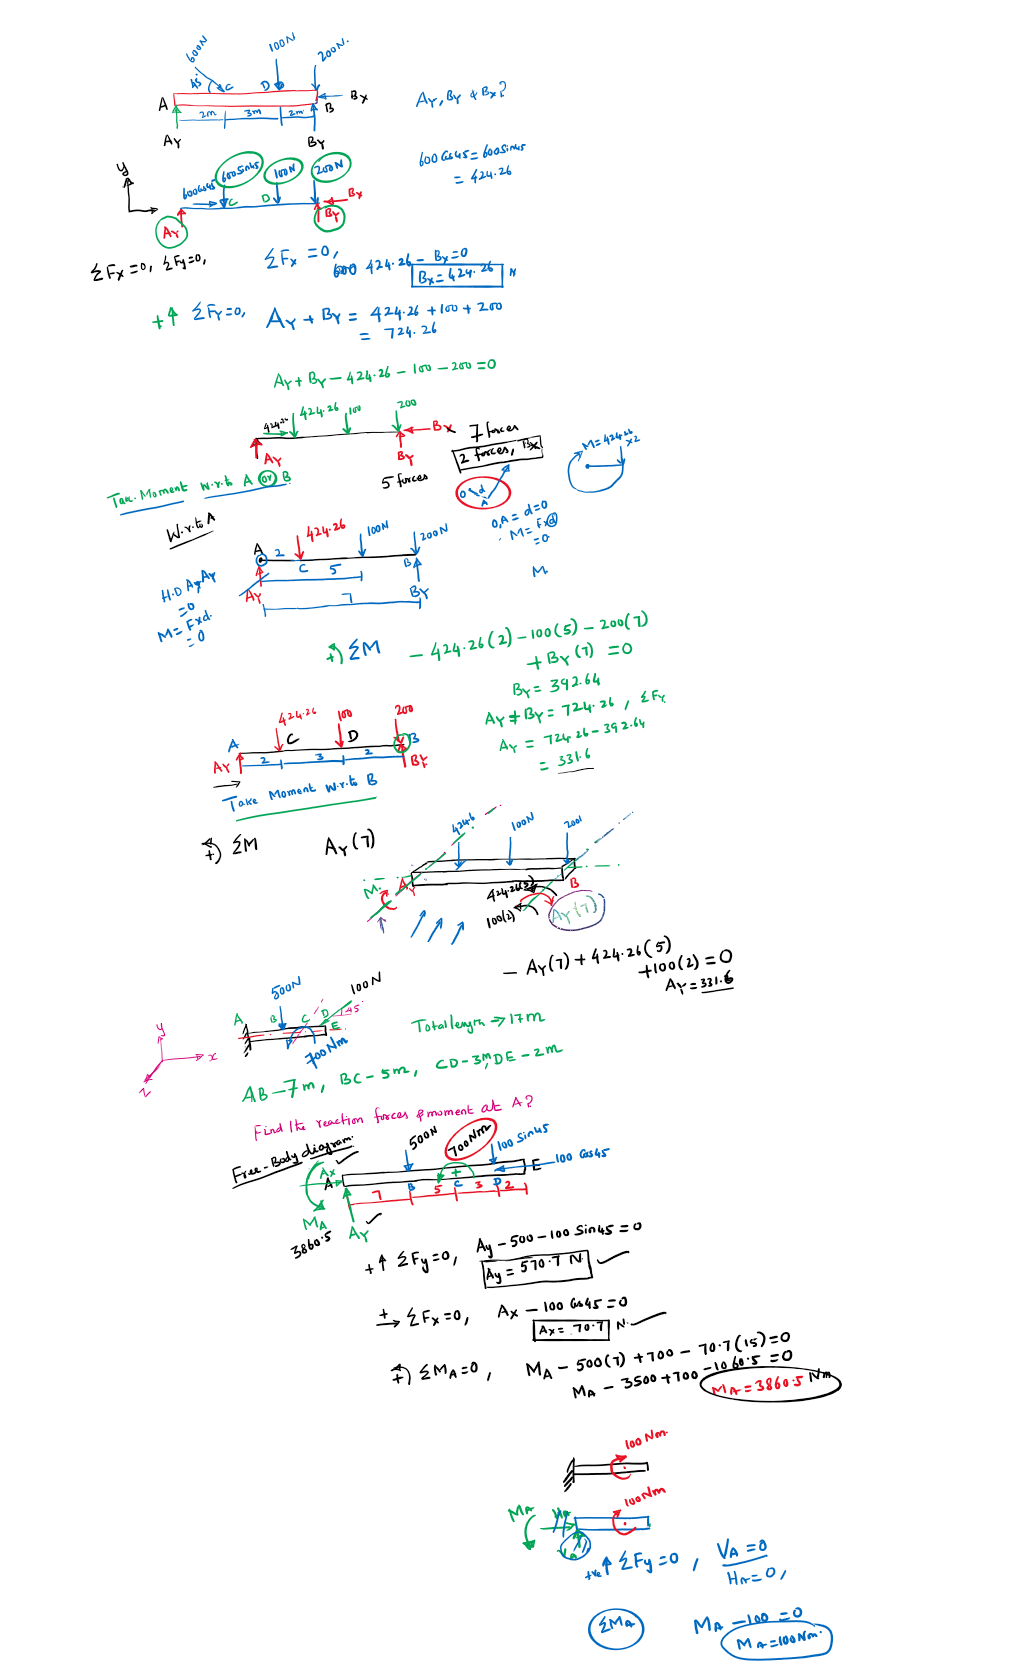 600N
100N
200N.
45°
C
D
A
Bx
B
2m
3m
2m
AY
BY
AY, BY & Bx?
600 Cos45 = 600 Sin45
= 424.26
y
600Cos45
600Sin45
100N
200N
C
D
Bx
AY
BY
ΣFx =0, ΣFy=0,
ΣFx =0,
600 424.26 - Bx=0
Bx = 424.26 N
+↑ ΣFy=0, AY + BY = 424.26 +100 + 200
= 724.26
AY + BY - 424.26 - 100 - 200 = 0
424.26
424.26
100
200
Bx
AY
BY
7 forces
2 forces, Bx
5 forces
M=424.26
×2
Take Moment w.r.to A or B
O
d
A
O,A = d=0
M= F×d
=0
M
W.r.to A
A
2
424.26
100N
200N
C
5
B
AY
BY
7
H.D AY, AY
=0
M= F×d.
= 0
+) ΣM - 424.26(2) - 100(5) - 200(7)
+ BY(7) = 0
BY = 392.64
AY + BY = 724.26, ΣFy
AY = 724.26 - 392.64
= 331.6
424.26
100
200
A
C
D
B
AY
2
3
2
BY
Take Moment w.r.to B
+) ΣM AY(7)
424.6
100N
200
M.
AY
B
424.26(5)
100(2)
AY(7)
- AY(7) + 424.26(5)
+100(2) = 0
AY = 331.6
500N
100N
A
B
C
D
E
45
700Nm
y
x
z
Total length → 17m
AB - 7m, BC - 5m, CD - 3m, DE - 2m
Find the reaction forces & moment at A?
Free-Body diagram.
500N
700Nm
100 Sin45
100 Cos45
Ax
A
E
7
B
5
C
3
D
2
MA
3860.5
AY
+↑ ΣFy=0, Ay - 500 - 100 Sin45 = 0
Ay = 570.7 N
+→ ΣFx=0, Ax - 100 Cos45 = 0
Ax = 70.7 N.
+) ΣMA=0, MA - 500(7) + 700 - 70.7(15) = 0
MA - 3500 + 700 - 1060.5 = 0
MA = 3860.5 Nm
100 Nm.
100Nm
MA
HA
VA
+ve↑ ΣFy = 0, VA = 0
HA = 0,
ΣMA MA - 100 = 0
MA = 100Nm.